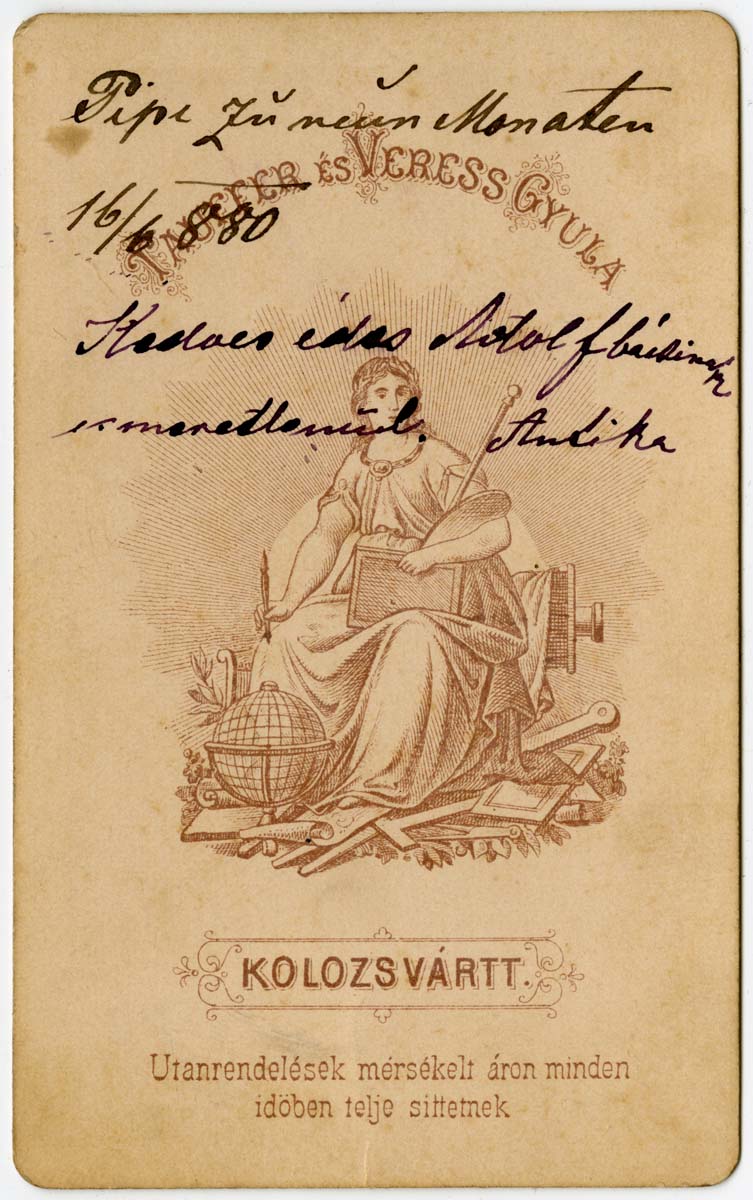 Pipi zŭ neŭn Monaten
16/6 880
ÉS VERESS GYULA
Kedves édes Adolf bácsinak
esmeretlenül. Antika
KOLOZSVÁRTT.
Utanrendelések mérsékelt áron minden
időben telje sittetnek